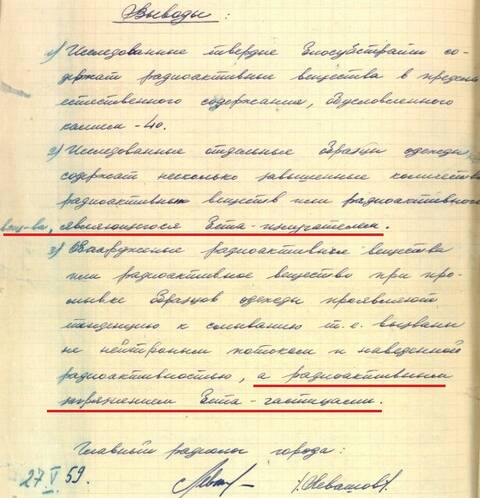 Выводы:
1) Исследованные твердые биосубстраты со-
держат радиоактивные вещества в пределах
естественного содержания, обусловленного
калием-40.
2) Исследованные отдельные образцы одежды
содержат несколько завышенные количества
радиоактивных веществ или радиоактивного
вещ-ва, являющегося бета-излучателем.
3) Обнаруженные радиоактивные вещества
или радиоактивное вещество при про-
мывке образцов одежды проявляют
тенденцию к смыванию т.е. вызваны
не нейтронным потоком и наведенной
радиоактивностью, а радиоактивным
загрязнением бета-частицами.
Главный радиолог города:
27 V 59. /Левашов/.